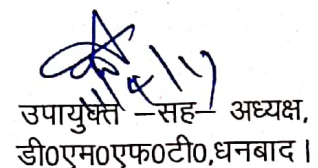 उपायुक्त –सह– अध्यक्ष,
डी0एम0एफ0टी0,धनबाद।